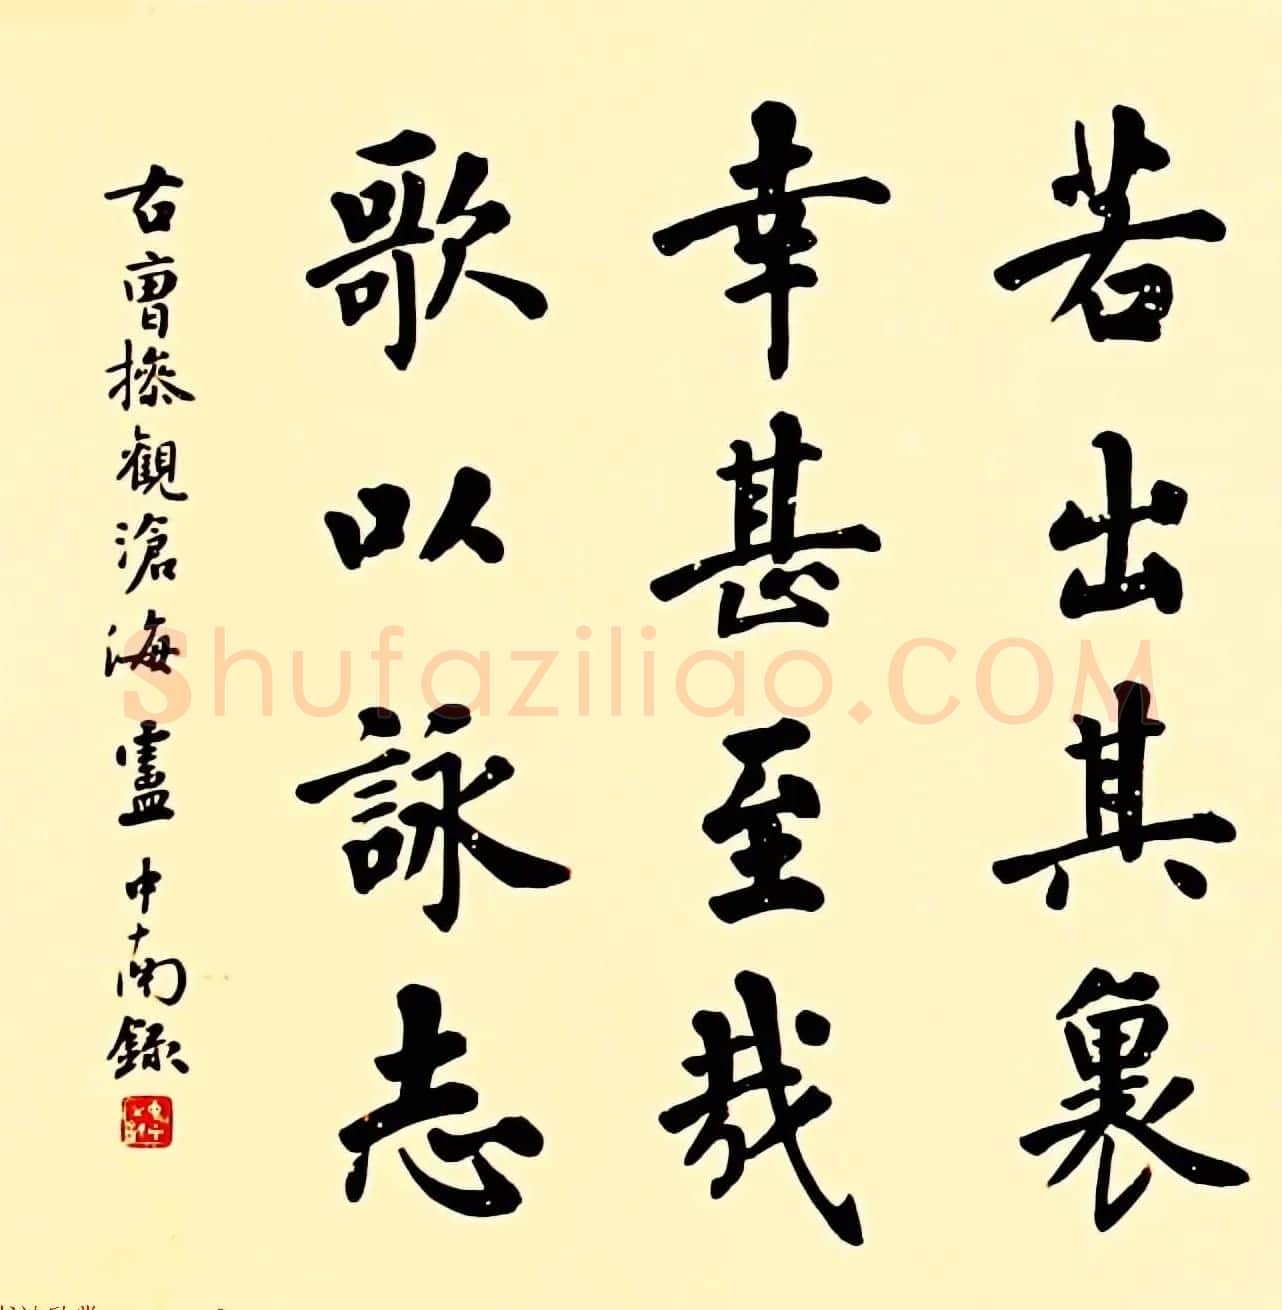 若出其裏
幸甚至哉
歌以詠志
右曹操觀滄海 盧中南錄
Shufaziliao.COM